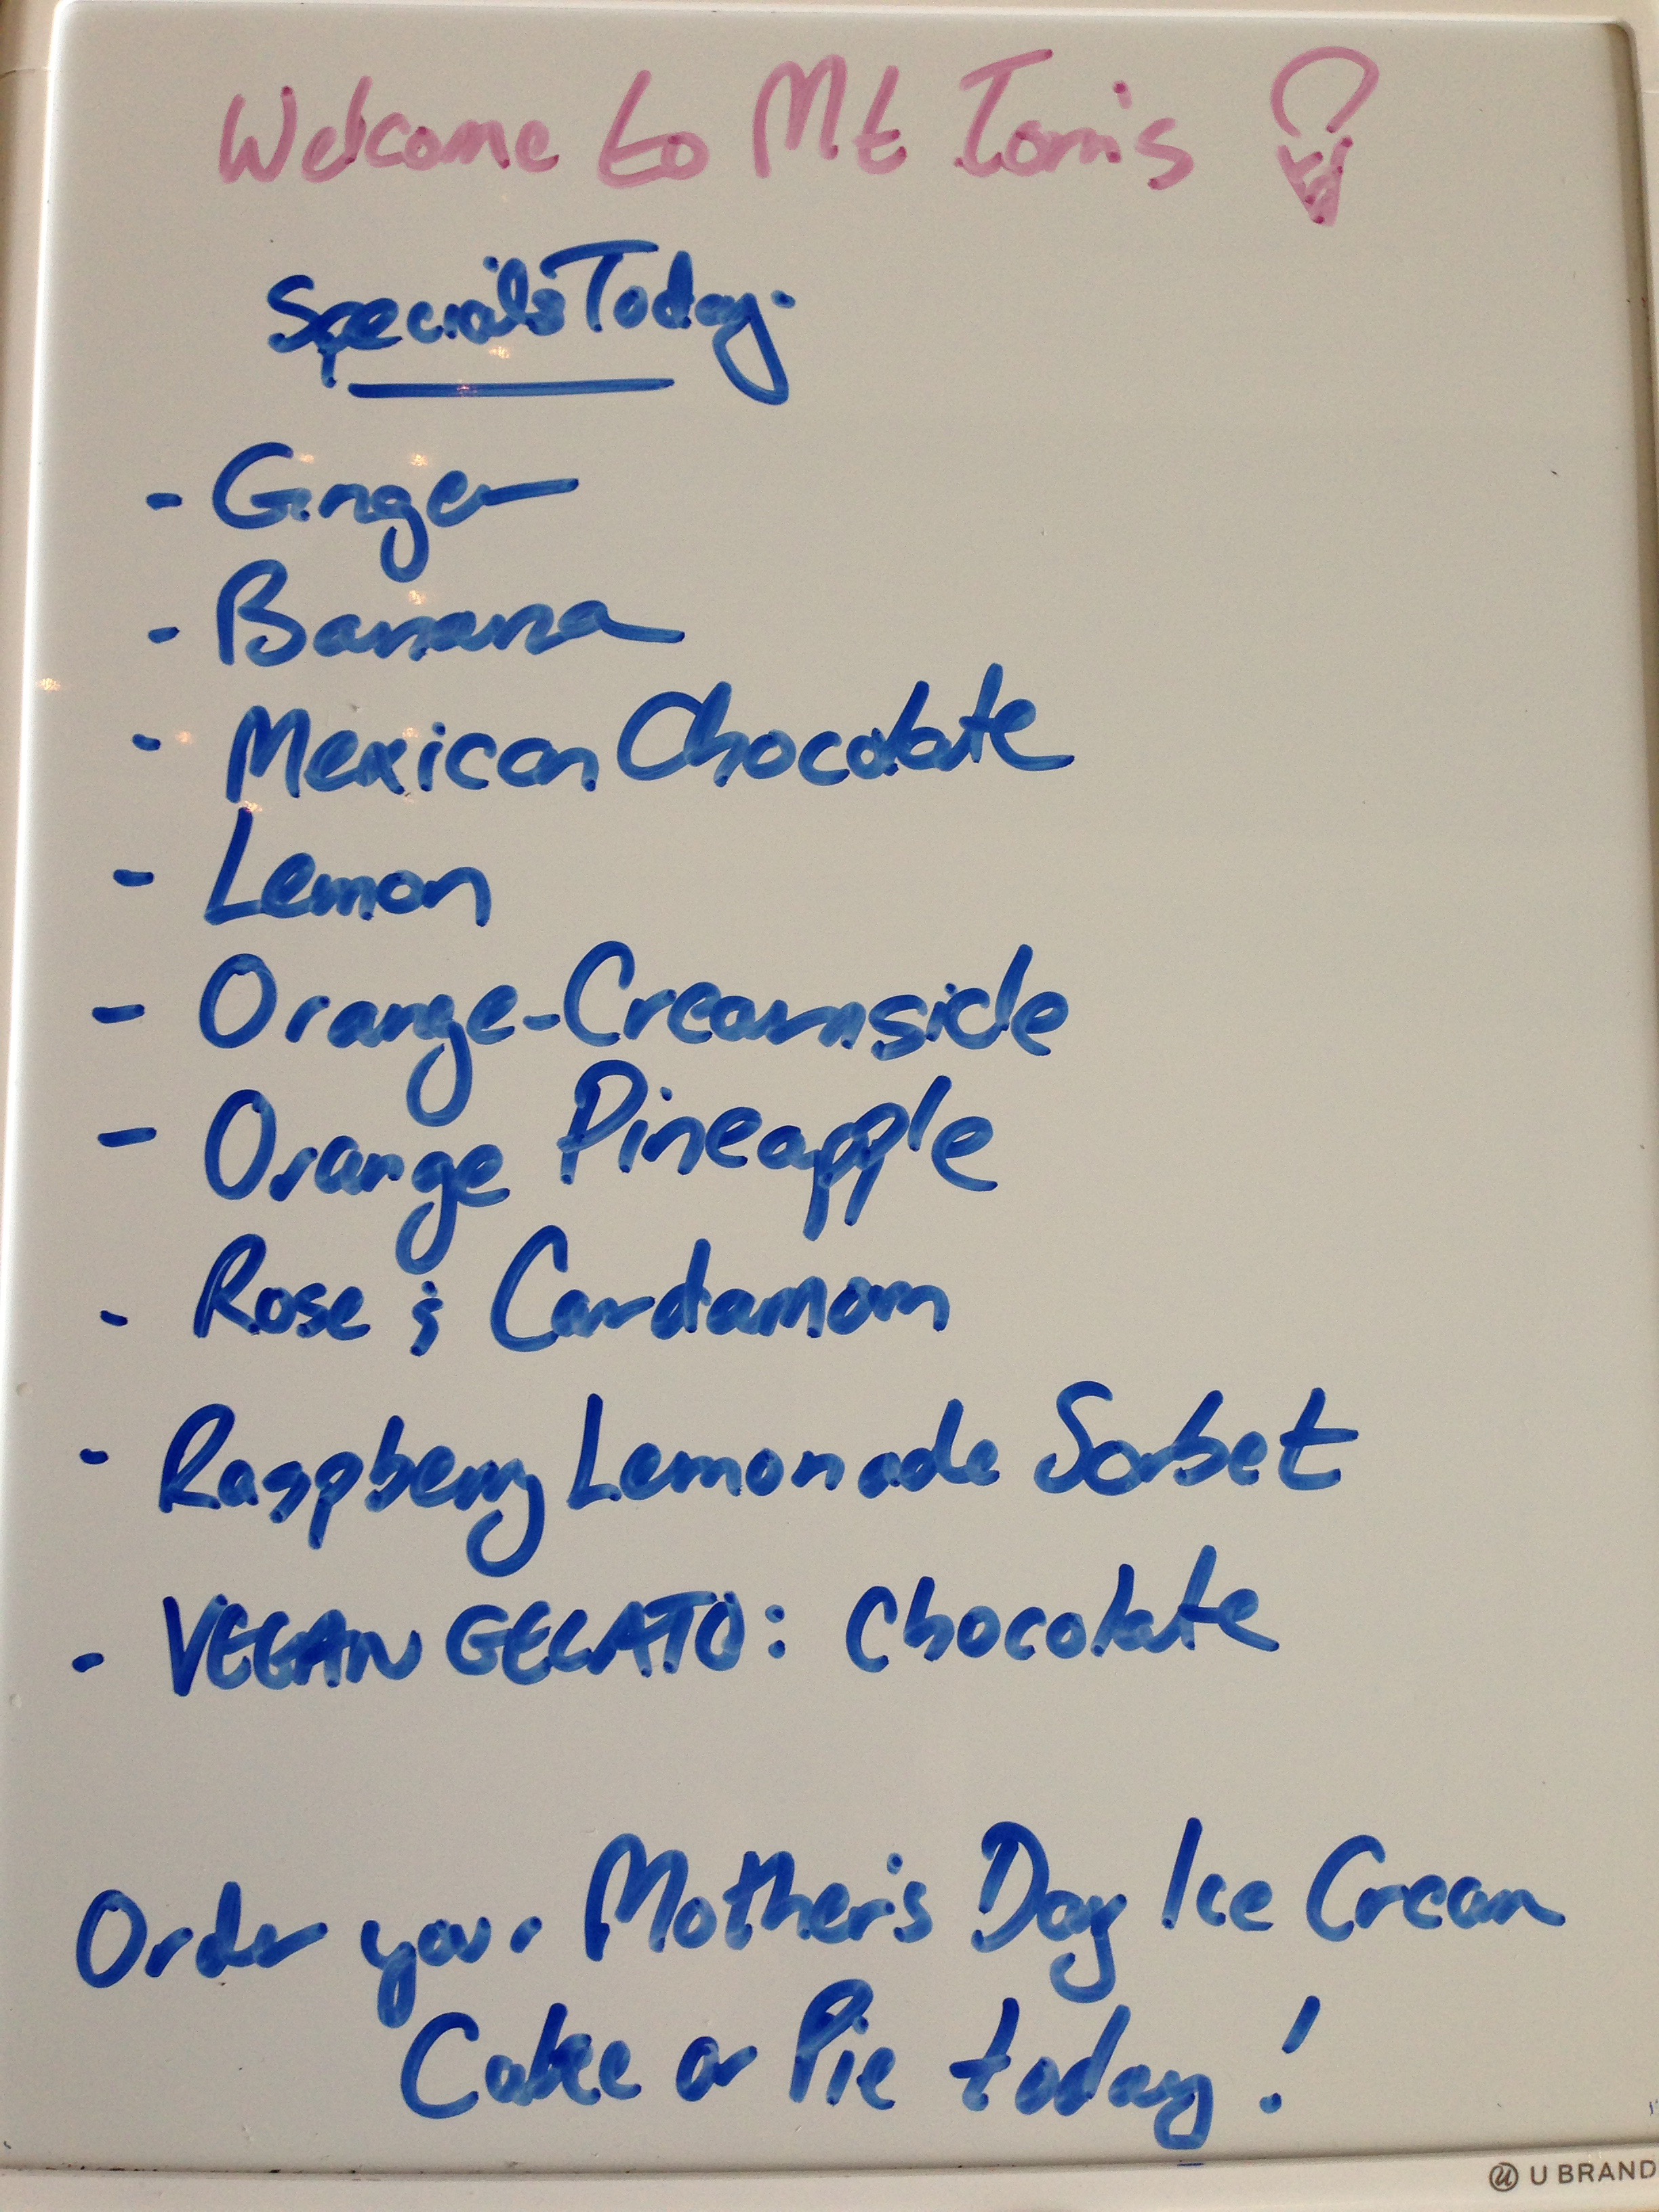 Welcome to Mt Tom's
Specials Today:
- Ginger
- Banana
- Mexican Chocolate
- Lemon
- Orange-Creamsicle
- Orange Pineapple
- Rose & Cardamom
- Raspberry Lemonade Sorbet
- VEGAN GELATO: Chocolate
Order your Mother's Day Ice Cream
Cake or Pie today!
U BRAND